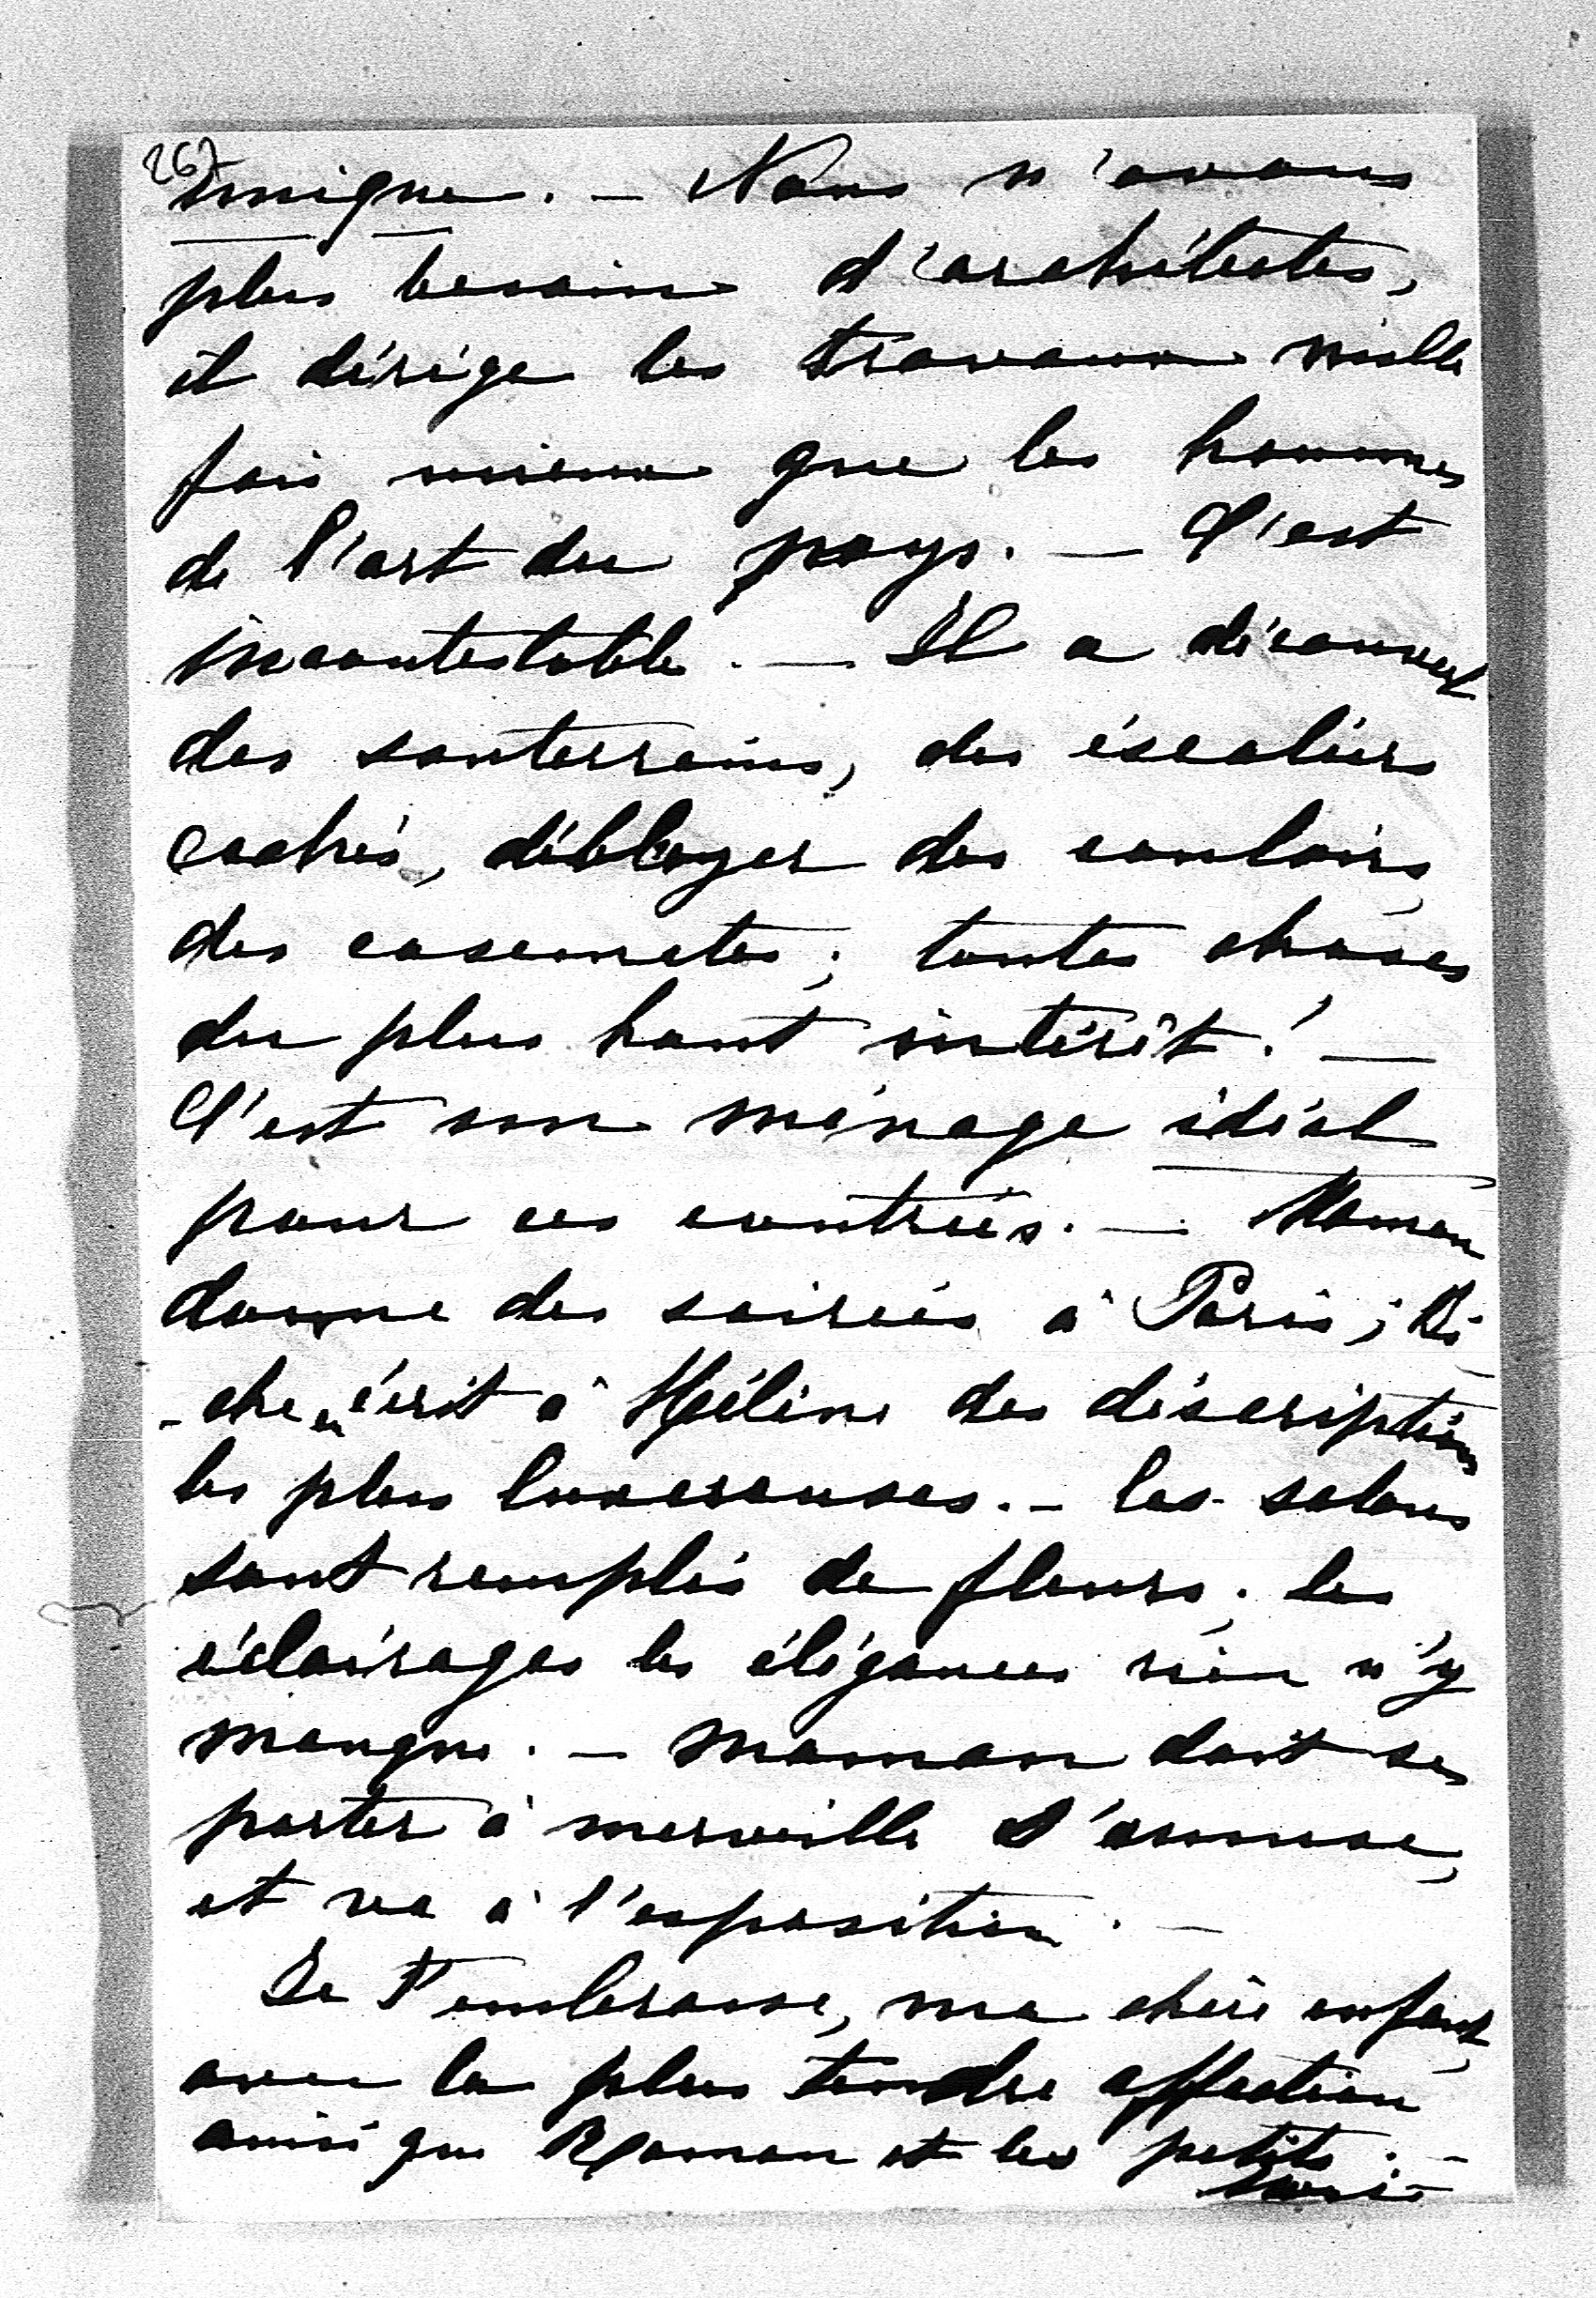 267
unique. — Nous n'avons
plus besoin d'architectes,
il dirige les travaux mille
fois mieux que les hommes
de l'art du pays. — C'est
incontestable. — Il a découvert
des souterrains, des éscaliers
cachés, déblayer des couloirs,
des casemates; toutes choses
du plus haut intérêt! —
C'est son ménage idéal
pour ces contrées. — Maman
donne des soirées à Paris;
écrit à Hélène des déscriptions
les plus luxueuses. — les salons
sont remplis de fleurs; les
éclairages les élégances rien n'y
manque. — Maman doit se
porter à merveille s'amuse,
et va à l'exposition. —
Je t'embrasse, ma chère enfant,
avec la plus tendre affection
ainsi que Roman et les petits. —